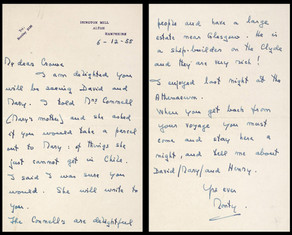 ISINGTON MILL
ALTON
HAMPSHIRE
6-12-55
My dear Connor
I am delighted you
will be seeing David and
Mary. I told Mrs Connell
(Mary's mother) and she asked
if you would take a parcel
out to Mary: of things she
just cannot get in Chile.
I said I was sure you
would. She will write to
you.
The Connells are delightful
people and have a large
estate near Glasgow. He is
a ship-builder on the Clyde
and they are very rich!
I enjoyed last night at the
Athenaeum.
When you get back from
your voyage you must
come and stay here a
night, and tell me about
David/Mary/and Henry.
Yrs ever
Monty